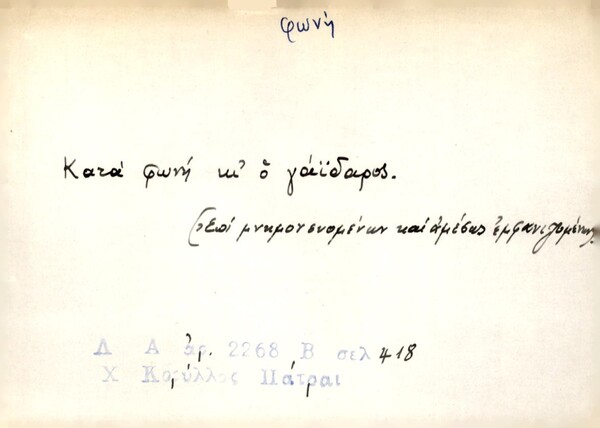 φωνή
Κατά φωνή κι' ὁ γάϊδαρος.
(Ἐπί μνημονευομένων καί ἀμέσως ἐμφανιζομένων)
Λ Α ἀρ. 2268 Β σελ 418
Χ Κορύλλος Πάτραι